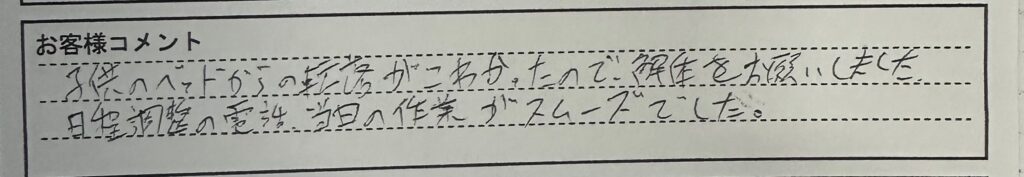 お客様コメント
子供のベッドからの転落がこわかったので、解体をお願いしました。
日程調整の電話、当日の作業がスムーズでした。